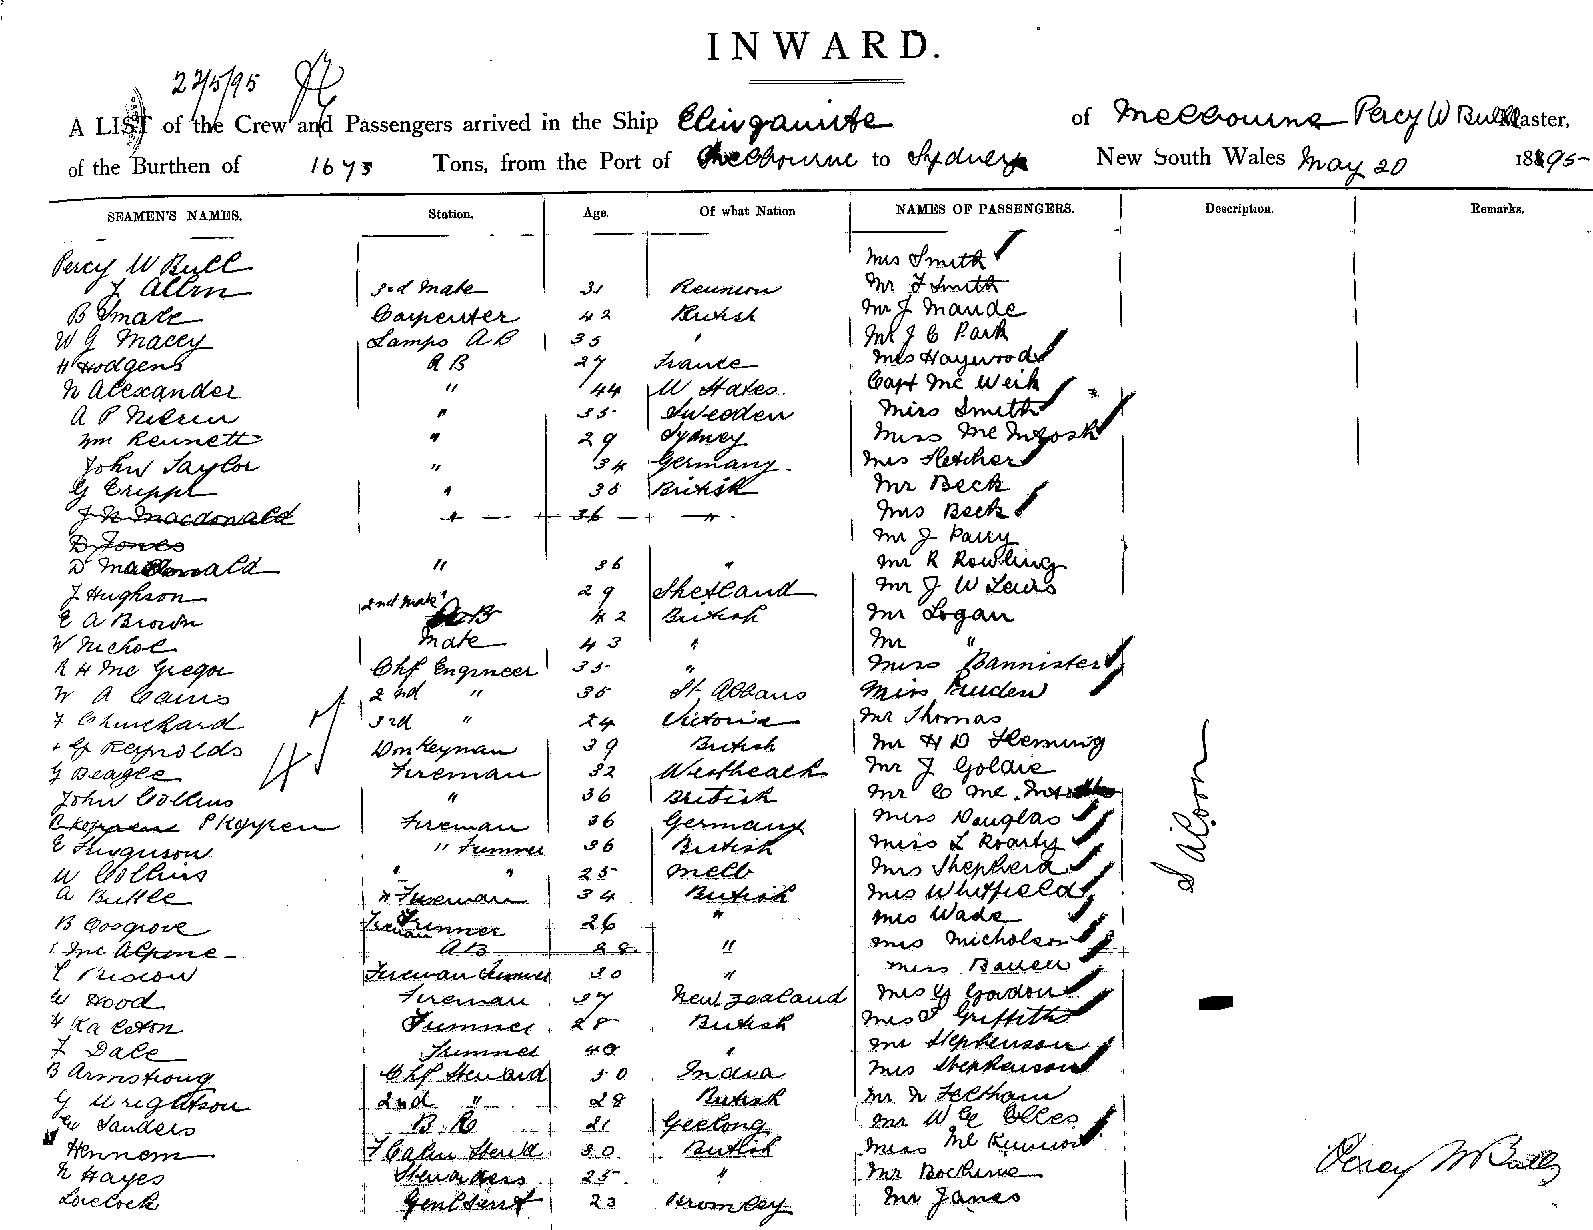 INWARD.
22/5/95
A LIST of the Crew and Passengers arrived in the Ship Elingamite of Melbourne Percy W Bull Master,
of the Burthen of 1675 Tons, from the Port of Melbourne to Sydney New South Wales May 20 1895
SEAMEN'S NAMES. Station. Age. Of what Nation NAMES OF PASSENGERS. Description. Remarks.
Percy W Bull Mrs Smith
J Allen 3rd Mate 31 Reunion Mr F Smith
B Smale Carpenter 42 British Mr J Maude
W G Macey Lamps AB 35 " Mr J C Park
H Hodgens AB 27 France Mrs Haywood
N Alexander " 44 W States Capt Mc Weik
A P " 35 Sweeden Miss Smith
Wm Rennett " 29 Sydney Miss McIntosh
John Taylor " 34 Germany Mrs Fletcher
G Cripps " 35 British Mr Beck
J N Macdonald " 36 " Mrs Beck
D Jones Mr J Parry
D MacDonald " 36 " Mr R Rowling
J Hughson 29 Shetland Mr J W Lewis
E A Brown 2nd Mate AB 42 British Mr Logan
W Nichol Mate 43 " Mr "
R H McGregor Chf Engineer 35 " Miss Bannister
W A Cains 2nd " 35 St Albans Miss
F Chinchard 3rd " 24 Victoria Mr Thomas
G Reynolds Donkeyman 39 British Mr H D Fleming
G Beagle Fireman 32 Mr J Goldie
John Collins " 36 British Mr C Mc
P Koppen Fireman 36 Germany Miss Douglas
E Ferguson " Trimmer 36 British Miss L Roarty
W Collins " " 25 Melb Mrs Shepherd
A Buttle " Fireman 34 British Mrs Whitfield
B Cosgrove Fireman Trimmer 26 " Mrs Wade
McAlpine AB 28 " Mrs Nicholson
Fireman Trimmer 30 " Miss
W Hood Fireman 37 New Zealand Mrs G Gordon
H Ralston Trimmer 28 British Mrs Griffiths
F Dale Trimmer 40 " Mr Stephenson
B Armstrong Chf Steward 50 India Mrs Stephenson
G Wrightson 2nd " 28 British Mr N Feltham
Sanders B. R 21 Geelong Mr W G Elles
Hennem F Cabin Stewd 30 British Miss
N Hayes Stewardess 25 " Mr
Lovelock Genl Servt 23 Bromley Mr James
Saloon
Percy W Bull